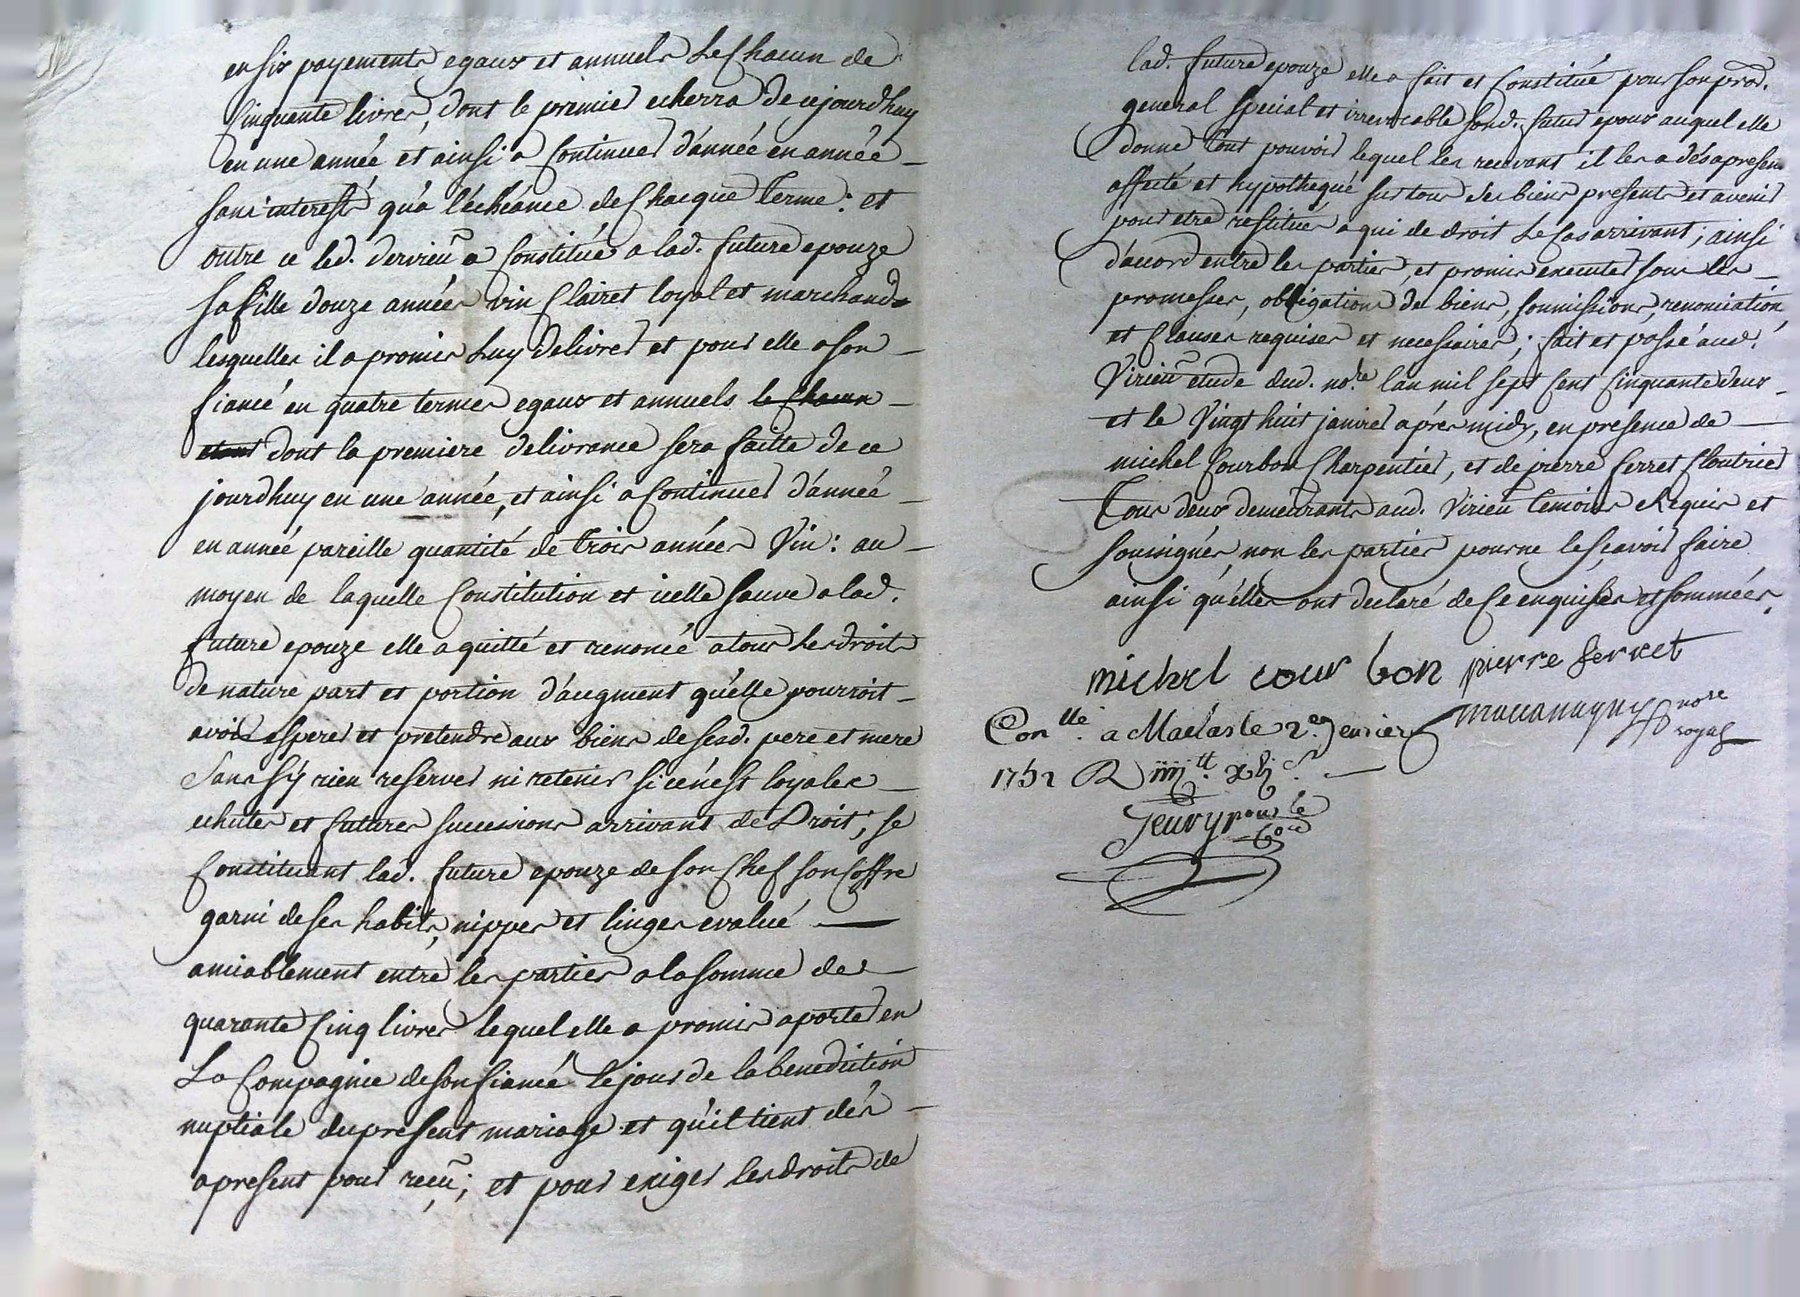 en six payements egaux et annuels de Chacun de
Cinquante livres, dont le premier echerra de cejourdhuy
en une année et ainsi a Continuer d'année en année
sans interests qu'a l'échéance de Chacque terme : et
outre ce led. dervieu a Constitué a lad. future epouze
sa fille douze années vin Clairet loyal et marchand
lesquelles il a promis luy délivrer et pour elle a son
fiancé en quatre termes egaux et annuels le Chacun
etant dont la premiere délivrance sera faitte de ce
jourdhuy en une année, et ainsi a Continuer d'année
en année pareille quantité de trois années Vin : au
moyen de laquelle Constitution et icelle sauve a lad.
future epouze elle a quitté et renoncé a tous les droits
de nature part et portion d'augment qu'elle pourroit
avoir esperer et pretendre aux biens de sesd. pere et mere
sans s'y rien reserver ni retenir si ce n'est loyales
echutes et futures successions arrivant de Droit ; se
Constituant lad. future epouze de son Chef son Coffre
garni de ses habits, nippes et linges evalué
amiablement entre les parties a la somme de
quarante Cinq livres lequel elle a promis aporter en
La Compagnie de son fiancé le jour de la benediction
nuptiale du present mariage et qu'il tient dés
apresent pour reçeu ; et pour exiger les droits de
lad. future epouze elle a fait et Constitué pour son prod.
general special et irrevocable sond. futur epoux auquel elle
donne tout pouvoir lequel les recevant il les a dés apresent
affecté et hypothequé sur tous ses biens presents et avenir
pour etre restitués a qui de droit le Cas arrivant ; ainsi
d'accord entre les parties, et promis executer sous les
promesses, obligations de biens, soumissions, renonciation
et Clauses requises et necessaires ; fait et passé aud.
Virieu etude dud. nore. l'an mil sept Cent Cinquante deux
et le Vingt huit janvier aprés midy, en presence de
michel Courbon Charpentier, et de pierre Ferret Cloutrier
Tous deux demeurants aud. Virieu temoins Requis et
soussignés, non les parties pour ne le sçavoir faire
ainsi qu'elles ont declaré de Ce enquises et sommées.
michel cour bon pierre ferret
nore
royal
Conlle. a Maclas le 2e. fevrier
1752 R iiiitt xii s.
pour le